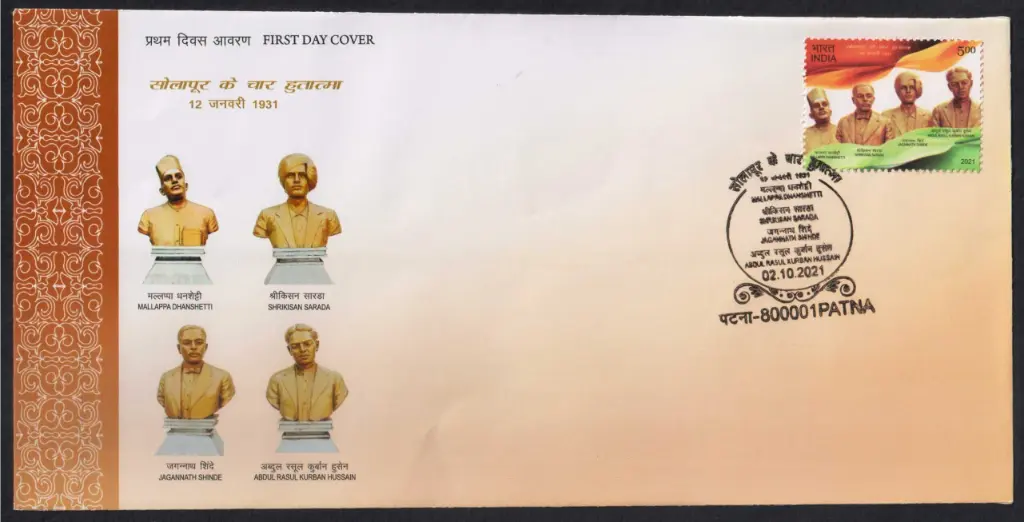 प्रथम दिवस आवरण FIRST DAY COVER
सोलापूर के चार हुतात्मा
12 जनवरी 1931
मल्लप्पा धनशेट्टी
MALLAPPA DHANSHETTI
श्रीकिसन सारडा
SHRIKISAN SARADA
जगन्नाथ शिंदे
JAGANNATH SHINDE
अब्दुल रसूल कुर्बान हुसेन
ABDUL RASUL KURBAN HUSSAIN
भारत
INDIA
5.00
2021
सोलापूर के चार हुतात्मा
12 जनवरी 1931
मल्लप्पा धनशेट्टी
MALLAPPA DHANSHETTI
श्रीकिसन सारडा
SHRIKISAN SARADA
जगन्नाथ शिंदे
JAGANNATH SHINDE
अब्दुल रसूल कुर्बान हुसेन
ABDUL RASUL KURBAN HUSSAIN
02.10.2021
पटना-800001PATNA